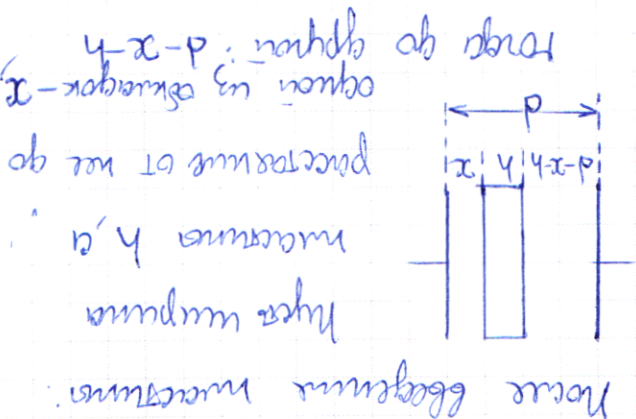 После введения пластины:
Пусть ширина
пластины h, а
расстояние от нее до
одной из обкладок – x,
тогда до другой: d-x-h
x h d-x-h
d